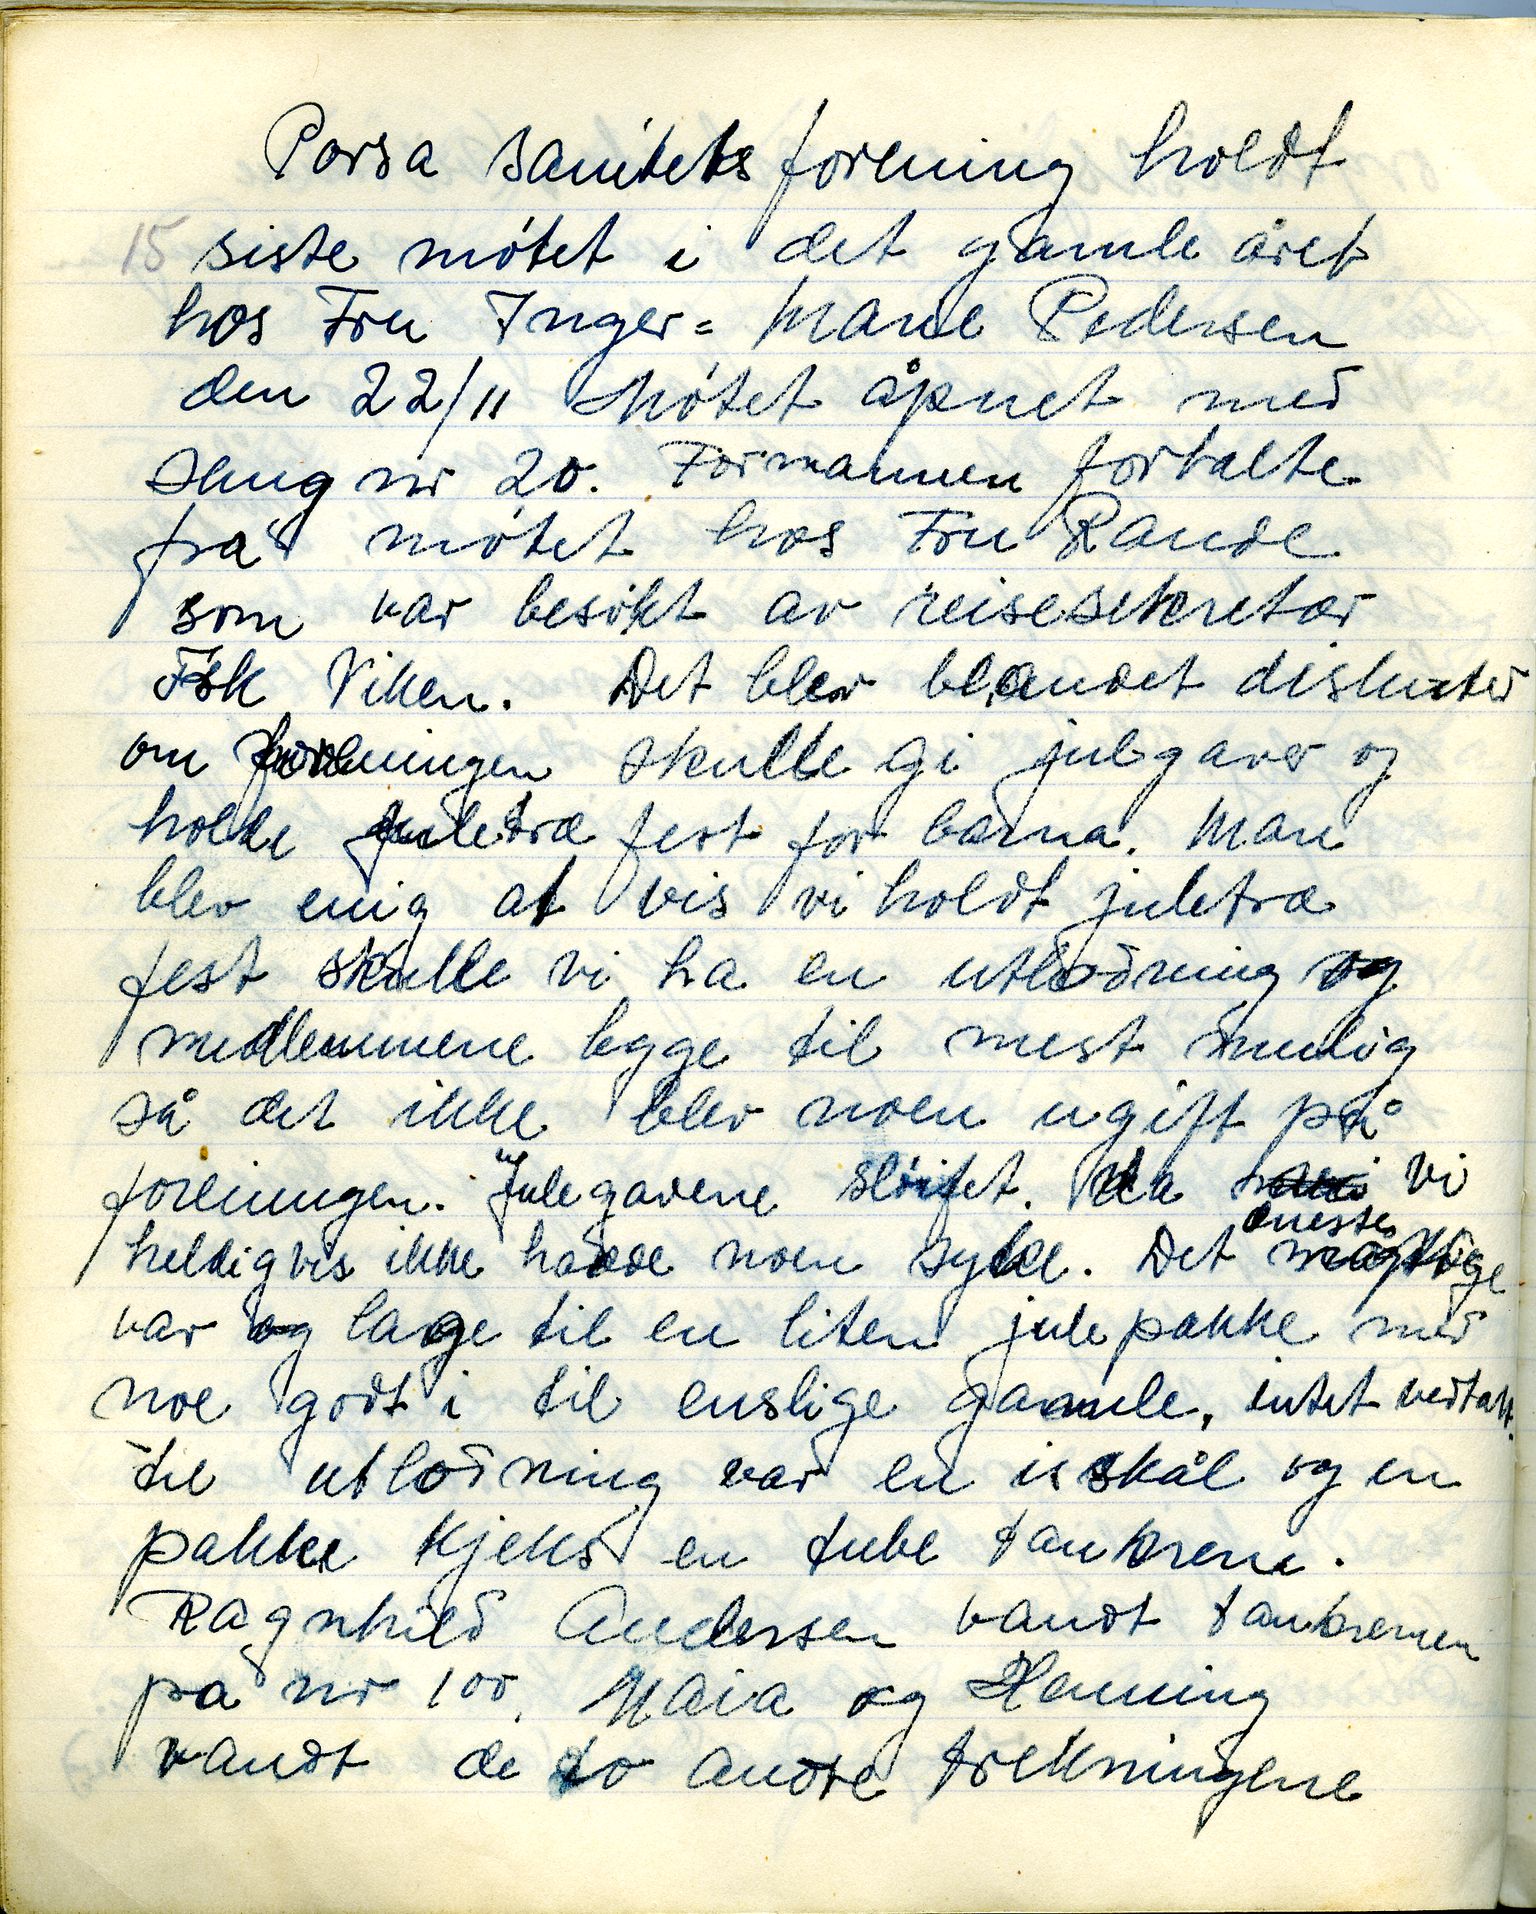 Porsa sanitetsforening holdt
15 siste møtet i det gamle året
hos Fru Inger = Marie Pedersen
den 22/11 Møtet åpnet med
sang nr 20. Formannen fortalte
fra møtet hos Fru Rande
som var besøkt av reisesekretær
Frk Viken. Det blev blandet diskuter
om foreningen skulle gi julegaver og
holde juletræ fest for barna. Man
blev enig at vis vi holdt juletræ
fest skulle vi ha en utlodning og
medlemmene legge til mest mulig
så det ikke blev noen ugift på
foreningen. Julegavene sløifet. da vi
heldigvis ikke hadde noen syke. Det eneste
var og lage til en liten julepakke med
noe godt i til enslige gamle, intet vedtatt.
til utlodning var en isskål og en
pakke Kjeks en tube tankrem.
Ragnhild Andersen vandt tankremen
på nr 100. Maia og Henning
vandt de to andre trekningene